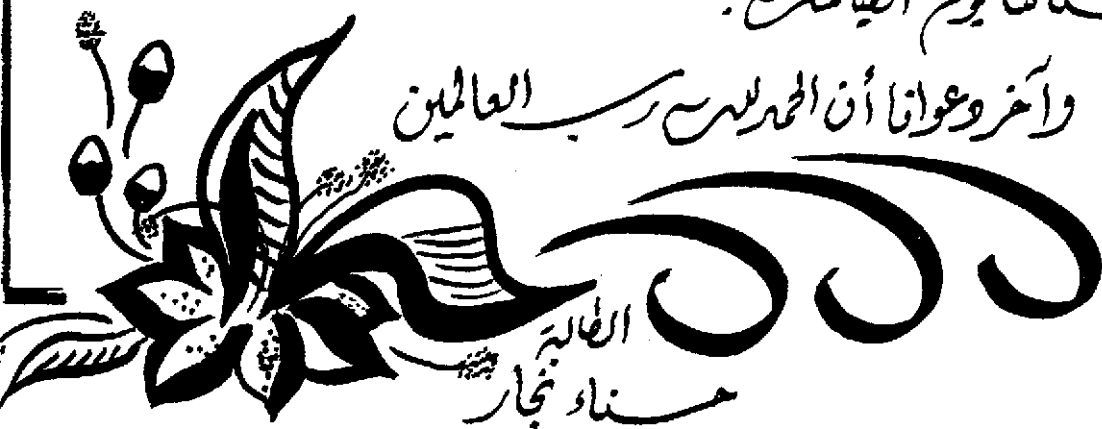 يوم القيامة.
وآخر دعوانا أن الحمد لله رب العالمين
الطالبة
حسناء نجار